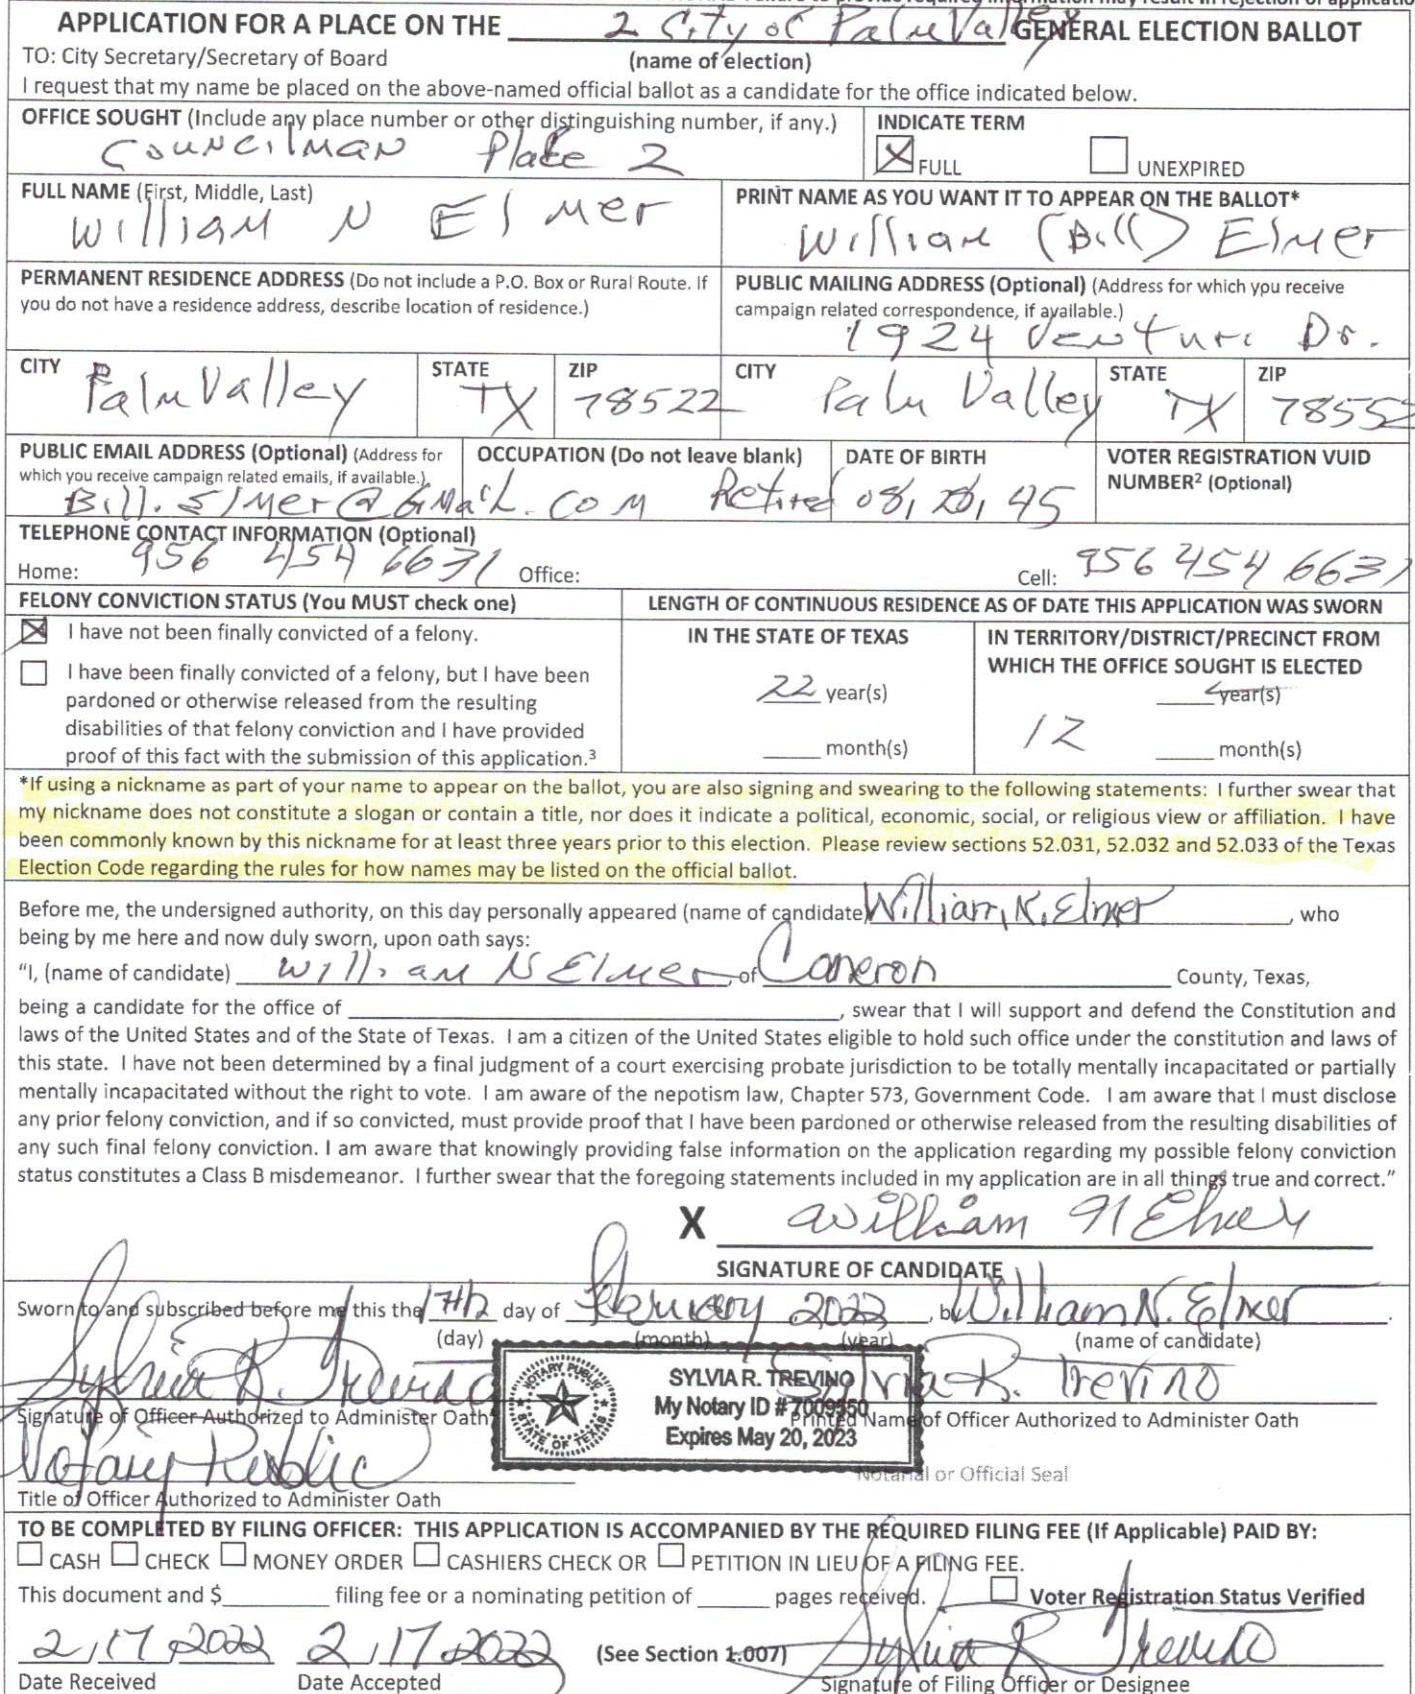 APPLICATION FOR A PLACE ON THE 2 City of Palm Valley GENERAL ELECTION BALLOT
TO: City Secretary/Secretary of Board (name of election)
I request that my name be placed on the above-named official ballot as a candidate for the office indicated below.
OFFICE SOUGHT (Include any place number or other distinguishing number, if any.)
Councilman Place 2
INDICATE TERM
FULL UNEXPIRED
FULL NAME (First, Middle, Last)
William N Elmer
PRINT NAME AS YOU WANT IT TO APPEAR ON THE BALLOT*
William (Bill) Elmer
PERMANENT RESIDENCE ADDRESS (Do not include a P.O. Box or Rural Route. If
you do not have a residence address, describe location of residence.)
PUBLIC MAILING ADDRESS (Optional) (Address for which you receive
campaign related correspondence, if available.)
1924 Ventura Dr.
CITY Palm Valley STATE TX ZIP 78522
CITY Palm Valley STATE TX ZIP 78552
PUBLIC EMAIL ADDRESS (Optional) (Address for
which you receive campaign related emails, if available.)
Bill.Elmer@GMail.com
OCCUPATION (Do not leave blank)
Retired
DATE OF BIRTH
08, 45
VOTER REGISTRATION VUID
NUMBER² (Optional)
TELEPHONE CONTACT INFORMATION (Optional)
Home: 956 454 6631 Office: Cell: 956 454 6631
FELONY CONVICTION STATUS (You MUST check one)
I have not been finally convicted of a felony.
I have been finally convicted of a felony, but I have been
pardoned or otherwise released from the resulting
disabilities of that felony conviction and I have provided
proof of this fact with the submission of this application.³
LENGTH OF CONTINUOUS RESIDENCE AS OF DATE THIS APPLICATION WAS SWORN
IN THE STATE OF TEXAS
22 year(s)
month(s)
IN TERRITORY/DISTRICT/PRECINCT FROM
WHICH THE OFFICE SOUGHT IS ELECTED
year(s)
12 month(s)
*If using a nickname as part of your name to appear on the ballot, you are also signing and swearing to the following statements: I further swear that
my nickname does not constitute a slogan or contain a title, nor does it indicate a political, economic, social, or religious view or affiliation. I have
been commonly known by this nickname for at least three years prior to this election. Please review sections 52.031, 52.032 and 52.033 of the Texas
Election Code regarding the rules for how names may be listed on the official ballot.
Before me, the undersigned authority, on this day personally appeared (name of candidate) William, N. Elmer, who
being by me here and now duly sworn, upon oath says:
"I, (name of candidate) William N Elmer of Cameron County, Texas,
being a candidate for the office of , swear that I will support and defend the Constitution and
laws of the United States and of the State of Texas. I am a citizen of the United States eligible to hold such office under the constitution and laws of
this state. I have not been determined by a final judgment of a court exercising probate jurisdiction to be totally mentally incapacitated or partially
mentally incapacitated without the right to vote. I am aware of the nepotism law, Chapter 573, Government Code. I am aware that I must disclose
any prior felony conviction, and if so convicted, must provide proof that I have been pardoned or otherwise released from the resulting disabilities of
any such final felony conviction. I am aware that knowingly providing false information on the application regarding my possible felony conviction
status constitutes a Class B misdemeanor. I further swear that the foregoing statements included in my application are in all things true and correct."
X William N Elmer
SIGNATURE OF CANDIDATE
Sworn to and subscribed before me this the 17th day of February 2022, by William N. Elmer.
(day) (month) (year) (name of candidate)
Sylvia R. Trevino Sylvia R. Trevino
Signature of Officer Authorized to Administer Oath Printed Name of Officer Authorized to Administer Oath
NOTARY PUBLIC STATE OF TEXAS
SYLVIA R. TREVINO
My Notary ID # 7009550
Expires May 20, 2023
Notary Public
Notarial or Official Seal
Title of Officer Authorized to Administer Oath
TO BE COMPLETED BY FILING OFFICER: THIS APPLICATION IS ACCOMPANIED BY THE REQUIRED FILING FEE (If Applicable) PAID BY:
CASH CHECK MONEY ORDER CASHIERS CHECK OR PETITION IN LIEU OF A FILING FEE.
This document and $ filing fee or a nominating petition of pages received. Voter Registration Status Verified
2/17/2022 2/17/2022 (See Section 1.007) Sylvia R Trevino
Date Received Date Accepted Signature of Filing Officer or Designee